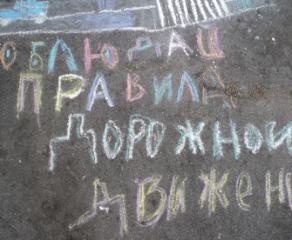 ОБЛЮДАЙ
ПРАВИЛА
ДОРОЖНОИ
ДВИЖЕН